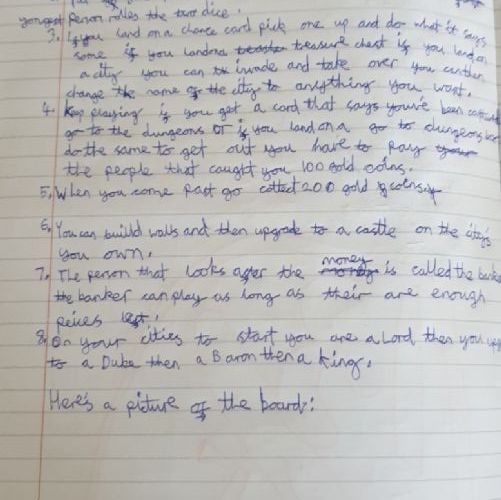 youngest Person rolles the two dice.
3. If you land on a chance card pick one up and do what it says
same if you land on a treasure chest if you land on
a city you can invade and take over you can then
change the name of the city to anything you want.
4. Keep playing if you get a card that says youve been
go to the dungeons or if you land on a go to dungeons
do the same to get out you have to pay
the people that caught you 100 gold coins.
5. When you come past go collect 200 gold coins
6. You can build walls and then upgrade to a castle on the citys
you own.
7. The person that looks after the money is called the
the banker can play as long as their are enough
peices left.
8. On your cities to start you are a Lord then you
to a Duke then a Baron then a king.
Here's a picture of the board: